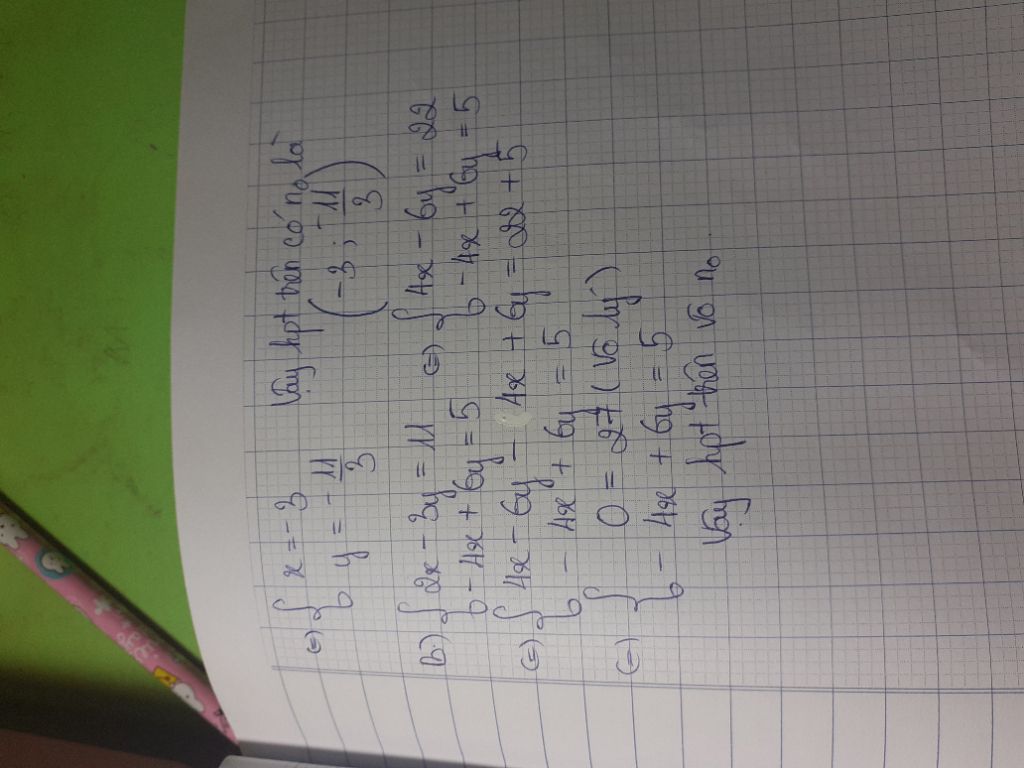 ⇔ { x = -3 Vậy hpt trên có n₀ là
y = - 11/3 (-3; - 11/3)
b) { 2x - 3y = 11 ⇔ { 4x - 6y = 22
- 4x + 6y = 5 - 4x + 6y = 5
⇔ { 4x - 6y - 4x + 6y = 22 + 5
- 4x + 6y = 5
⇔ { 0 = 27 (vô lý)
- 4x + 6y = 5
Vậy hpt trên vô n₀